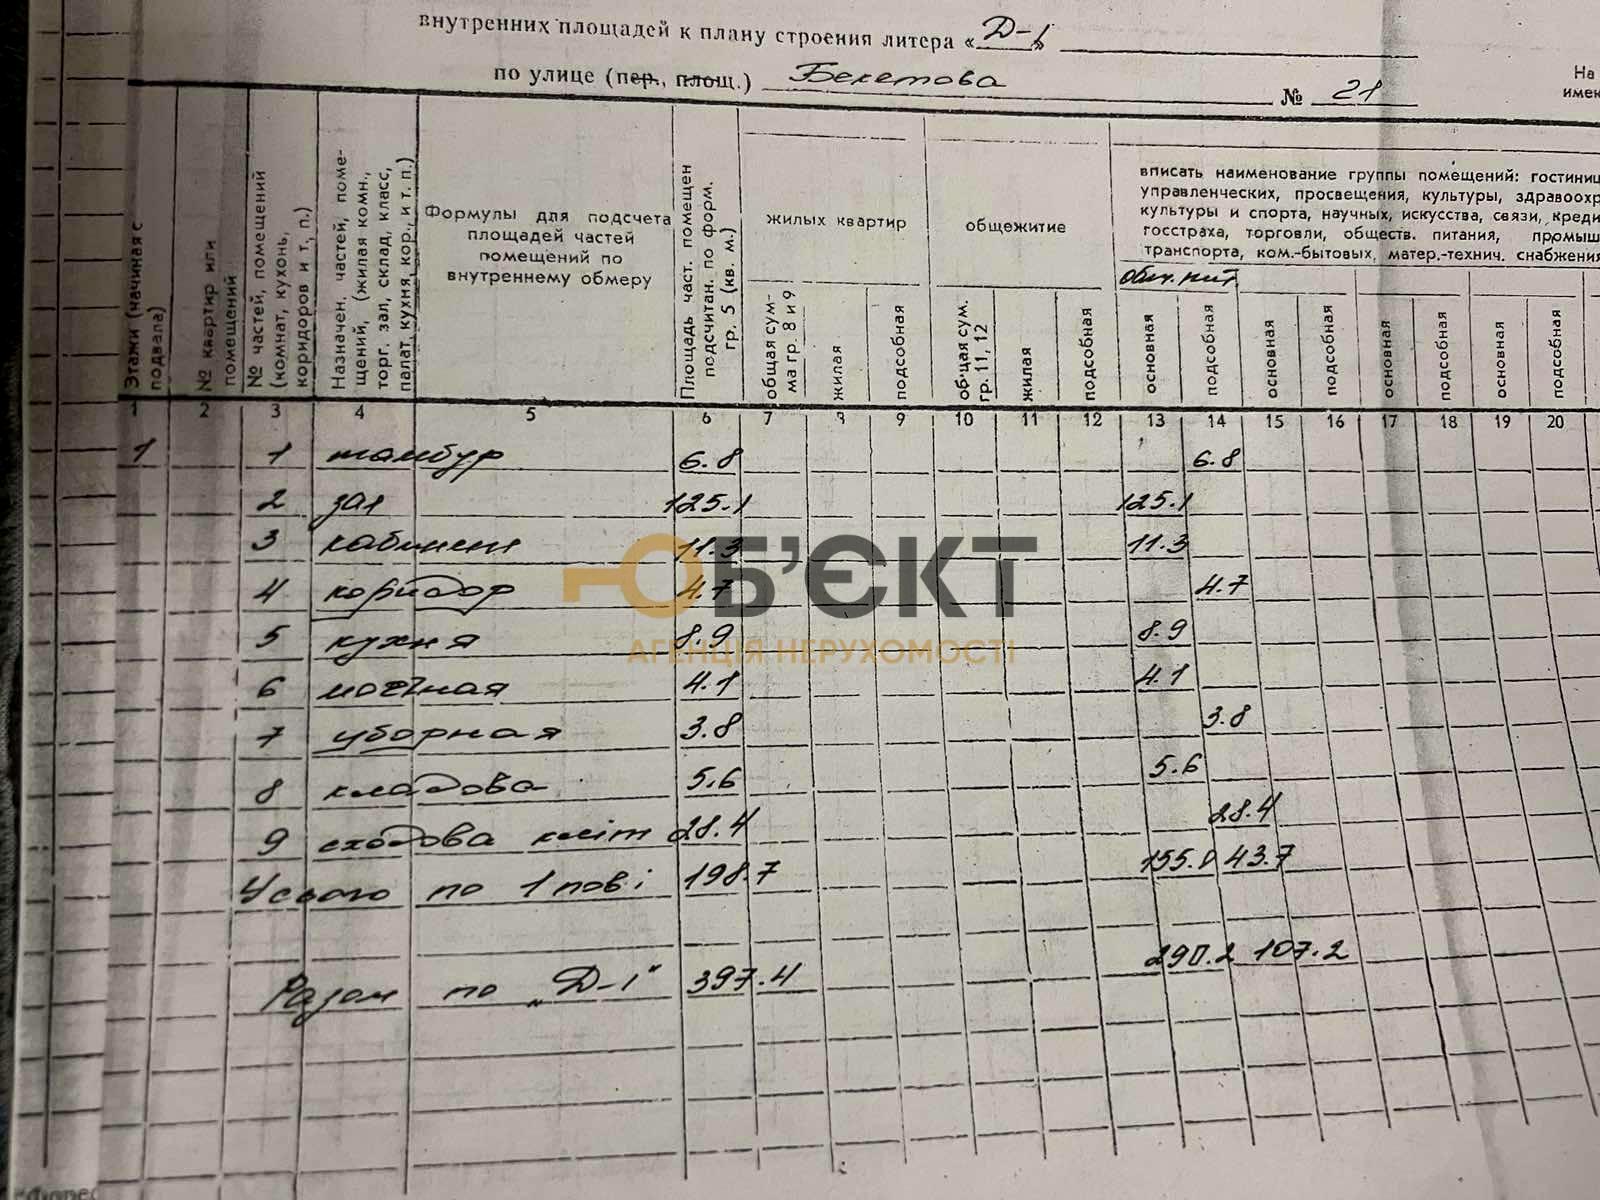 внутренних площадей к плану строения литера «Д-1»
по улице (пер., площ.) Бекетова № 21
На
имен
Этажи (начиная с подвала)
№ квартир или помещений
№ частей, помещений (комнат, кухонь, коридоров и т. п.)
Назначен. частей, помещений, (жилая комн., торг. зал, склад, класс, палат, кухня, кор., и т. п.)
Формулы для подсчета
площадей частей
помещений по
внутреннему обмеру
Площадь част. помещен подсчитан. по форм. гр. 5 (кв. м.)
жилых квартир
общая сумма гр. 8 и 9
жилая
подсобная
общежитие
общая сум. гр. 11, 12
жилая
подсобная
вписать наименование группы помещений: гостиниц
управленческих, просвещения, культуры, здравоохр
культуры и спорта, научных, искусства, связи, креди
госстраха, торговли, обществ. питания, промыш
транспорта, ком.-бытовых, матер.-технич. снабжения
общ. пит.
основная подсобная основная подсобная основная подсобная основная подсобная
1 2 3 4 5 6 7 8 9 10 11 12 13 14 15 16 17 18 19 20
1 1 тамбур 6.8 6.8
2 зал 125.1 125.1
3 кабинет 11.3 11.3
4 коридор 4.7 4.7
5 кухня 8.9 8.9
6 моечная 4.1 4.1
7 уборная 3.8 3.8
8 кладова 5.6 5.6
9 сходова кліт 28.4 28.4
Усього по 1 пові 198.7 155.0 43.7
Разом по „Д-1" 397.4 290.2 107.2
ОБ'ЄКТ
АГЕНЦІЯ НЕРУХОМОСТІ